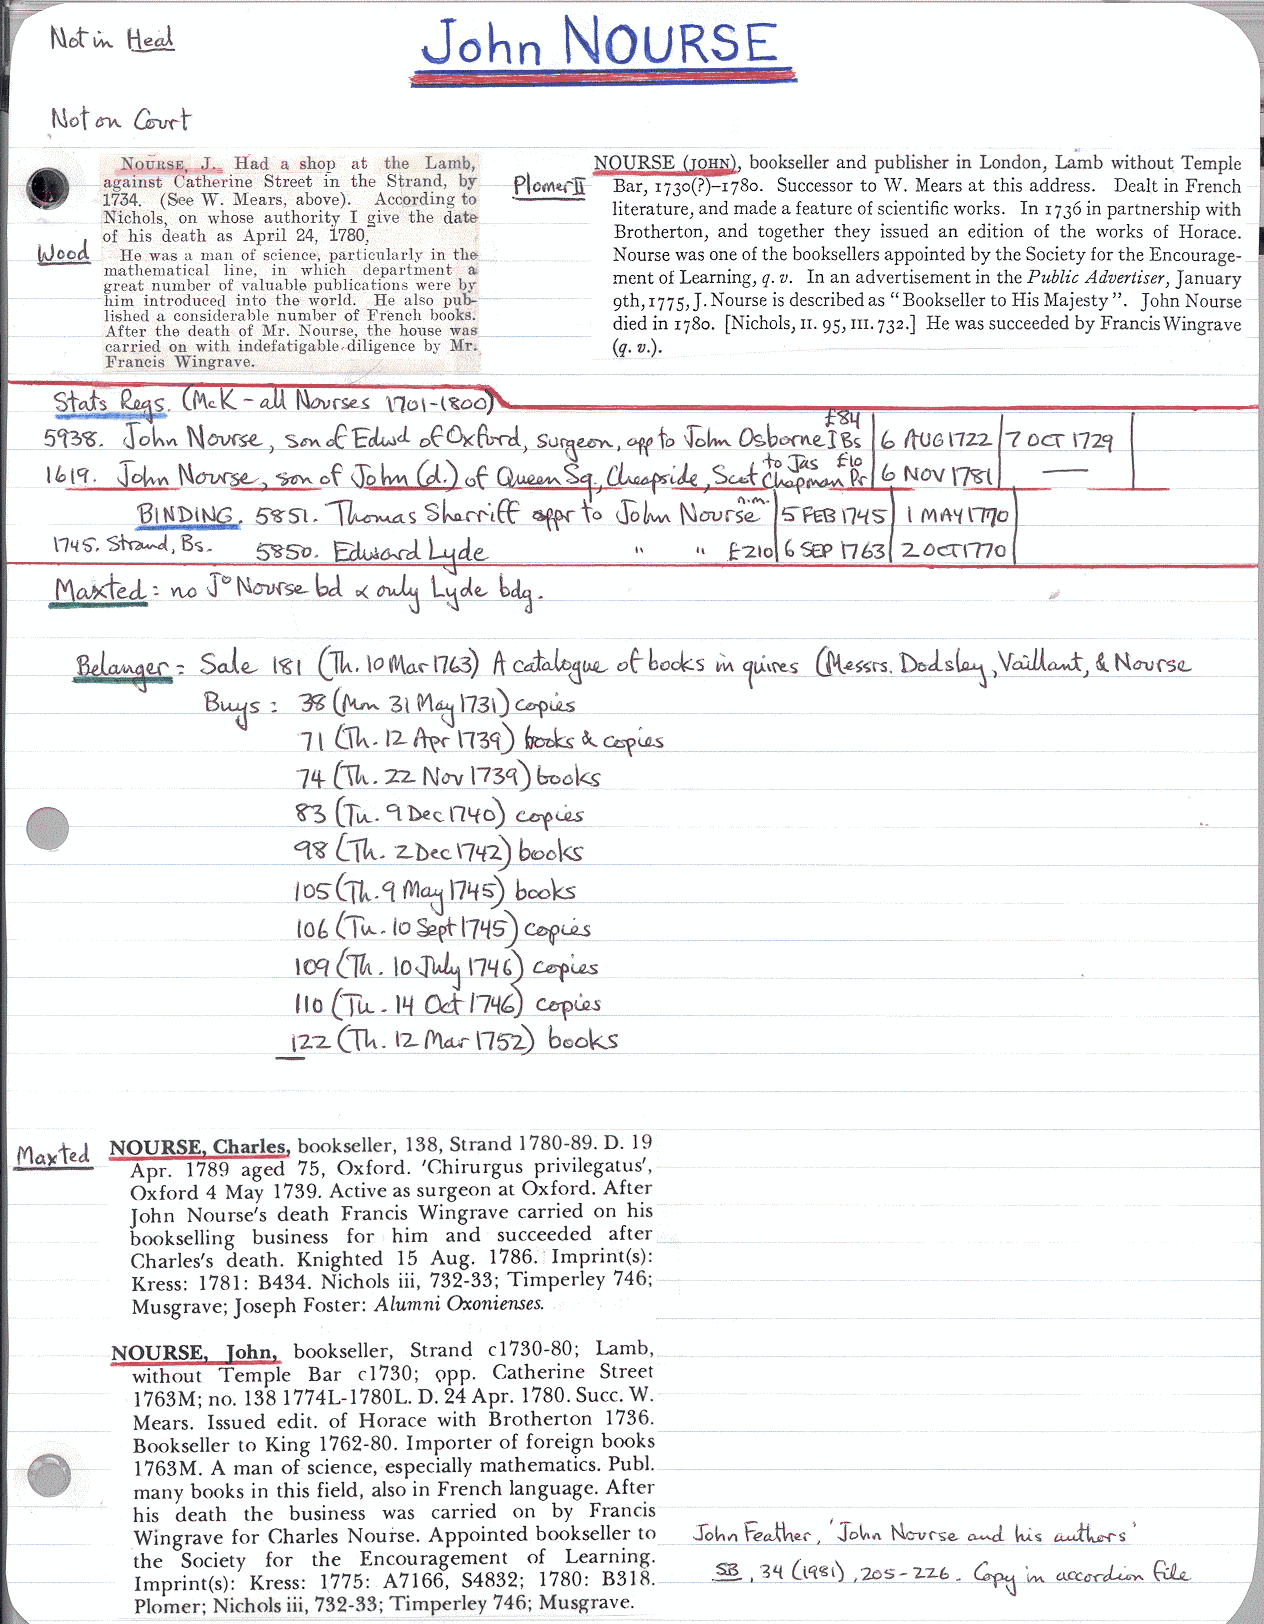 Not in Heal
John NOURSE
Not on Court
NOURSE, J. Had a shop at the Lamb,
against Catherine Street in the Strand, by
1734. (See W. Mears, above). According to
Nichols, on whose authority I give the date
of his death as April 24, 1780,
Wood
He was a man of science, particularly in the
mathematical line, in which department a
great number of valuable publications were by
him introduced into the world. He also pub-
lished a considerable number of French books.
After the death of Mr. Nourse, the house was
carried on with indefatigable diligence by Mr.
Francis Wingrave.
Plomer II
NOURSE (JOHN), bookseller and publisher in London, Lamb without Temple
Bar, 1730(?)–1780. Successor to W. Mears at this address. Dealt in French
literature, and made a feature of scientific works. In 1736 in partnership with
Brotherton, and together they issued an edition of the works of Horace.
Nourse was one of the booksellers appointed by the Society for the Encourage-
ment of Learning, q. v. In an advertisement in the Public Advertiser, January
9th, 1775, J. Nourse is described as "Bookseller to His Majesty". John Nourse
died in 1780. [Nichols, II. 95, III. 732.] He was succeeded by Francis Wingrave
(q. v.).
Stats Regs. (McK – all Nourses 1701–1800)
5938. John Nourse, son of Edwd of Oxford, surgeon, app to John Osborne I Bs £84 6 AUG 1722 7 OCT 1729
1619. John Nourse, son of John (d.) of Queen Sq., Cheapside, Scot to Jas Chapman £10 Pr 6 NOV 1781 —
BINDING. 5851. Thomas Sherriff appr to John Nourse n.m. 5 FEB 1745 1 MAY 1770
1745. Strand, Bs. 5850. Edward Lyde " " £210 6 SEP 1763 2 OCT 1770
Maxted: no Jo Nourse bd & only Lyde bdg.
Belanger: Sale 181 (Th. 10 Mar 1763) A catalogue of books in quires (Messrs. Dodsley, Vaillant, & Nourse
Buys: 38 (Mon 31 May 1731) copies
71 (Th. 12 Apr 1739) books & copies
74 (Th. 22 Nov 1739) books
83 (Tu. 9 Dec 1740) copies
98 (Th. 2 Dec 1742) books
105 (Th. 9 May 1745) books
106 (Tu. 10 Sept 1745) copies
109 (Th. 10 July 1746) copies
110 (Tu. 14 Oct 1746) copies
122 (Th. 12 Mar 1752) books
Maxted
NOURSE, Charles, bookseller, 138, Strand 1780-89. D. 19
Apr. 1789 aged 75, Oxford. 'Chirurgus privilegatus',
Oxford 4 May 1739. Active as surgeon at Oxford. After
John Nourse's death Francis Wingrave carried on his
bookselling business for him and succeeded after
Charles's death. Knighted 15 Aug. 1786. Imprint(s):
Kress: 1781: B434. Nichols iii, 732-33; Timperley 746;
Musgrave; Joseph Foster: Alumni Oxonienses.
NOURSE, John, bookseller, Strand c1730-80; Lamb,
without Temple Bar c1730; opp. Catherine Street
1763M; no. 138 1774L-1780L. D. 24 Apr. 1780. Succ. W.
Mears. Issued edit. of Horace with Brotherton 1736.
Bookseller to King 1762-80. Importer of foreign books
1763M. A man of science, especially mathematics. Publ.
many books in this field, also in French language. After
his death the business was carried on by Francis
Wingrave for Charles Nourse. Appointed bookseller to
the Society for the Encouragement of Learning.
Imprint(s): Kress: 1775: A7166, S4832; 1780: B318.
Plomer; Nichols iii, 732-33; Timperley 746; Musgrave.
John Feather, 'John Nourse and his authors'
SB, 34 (1981), 205-226. Copy in accordion file